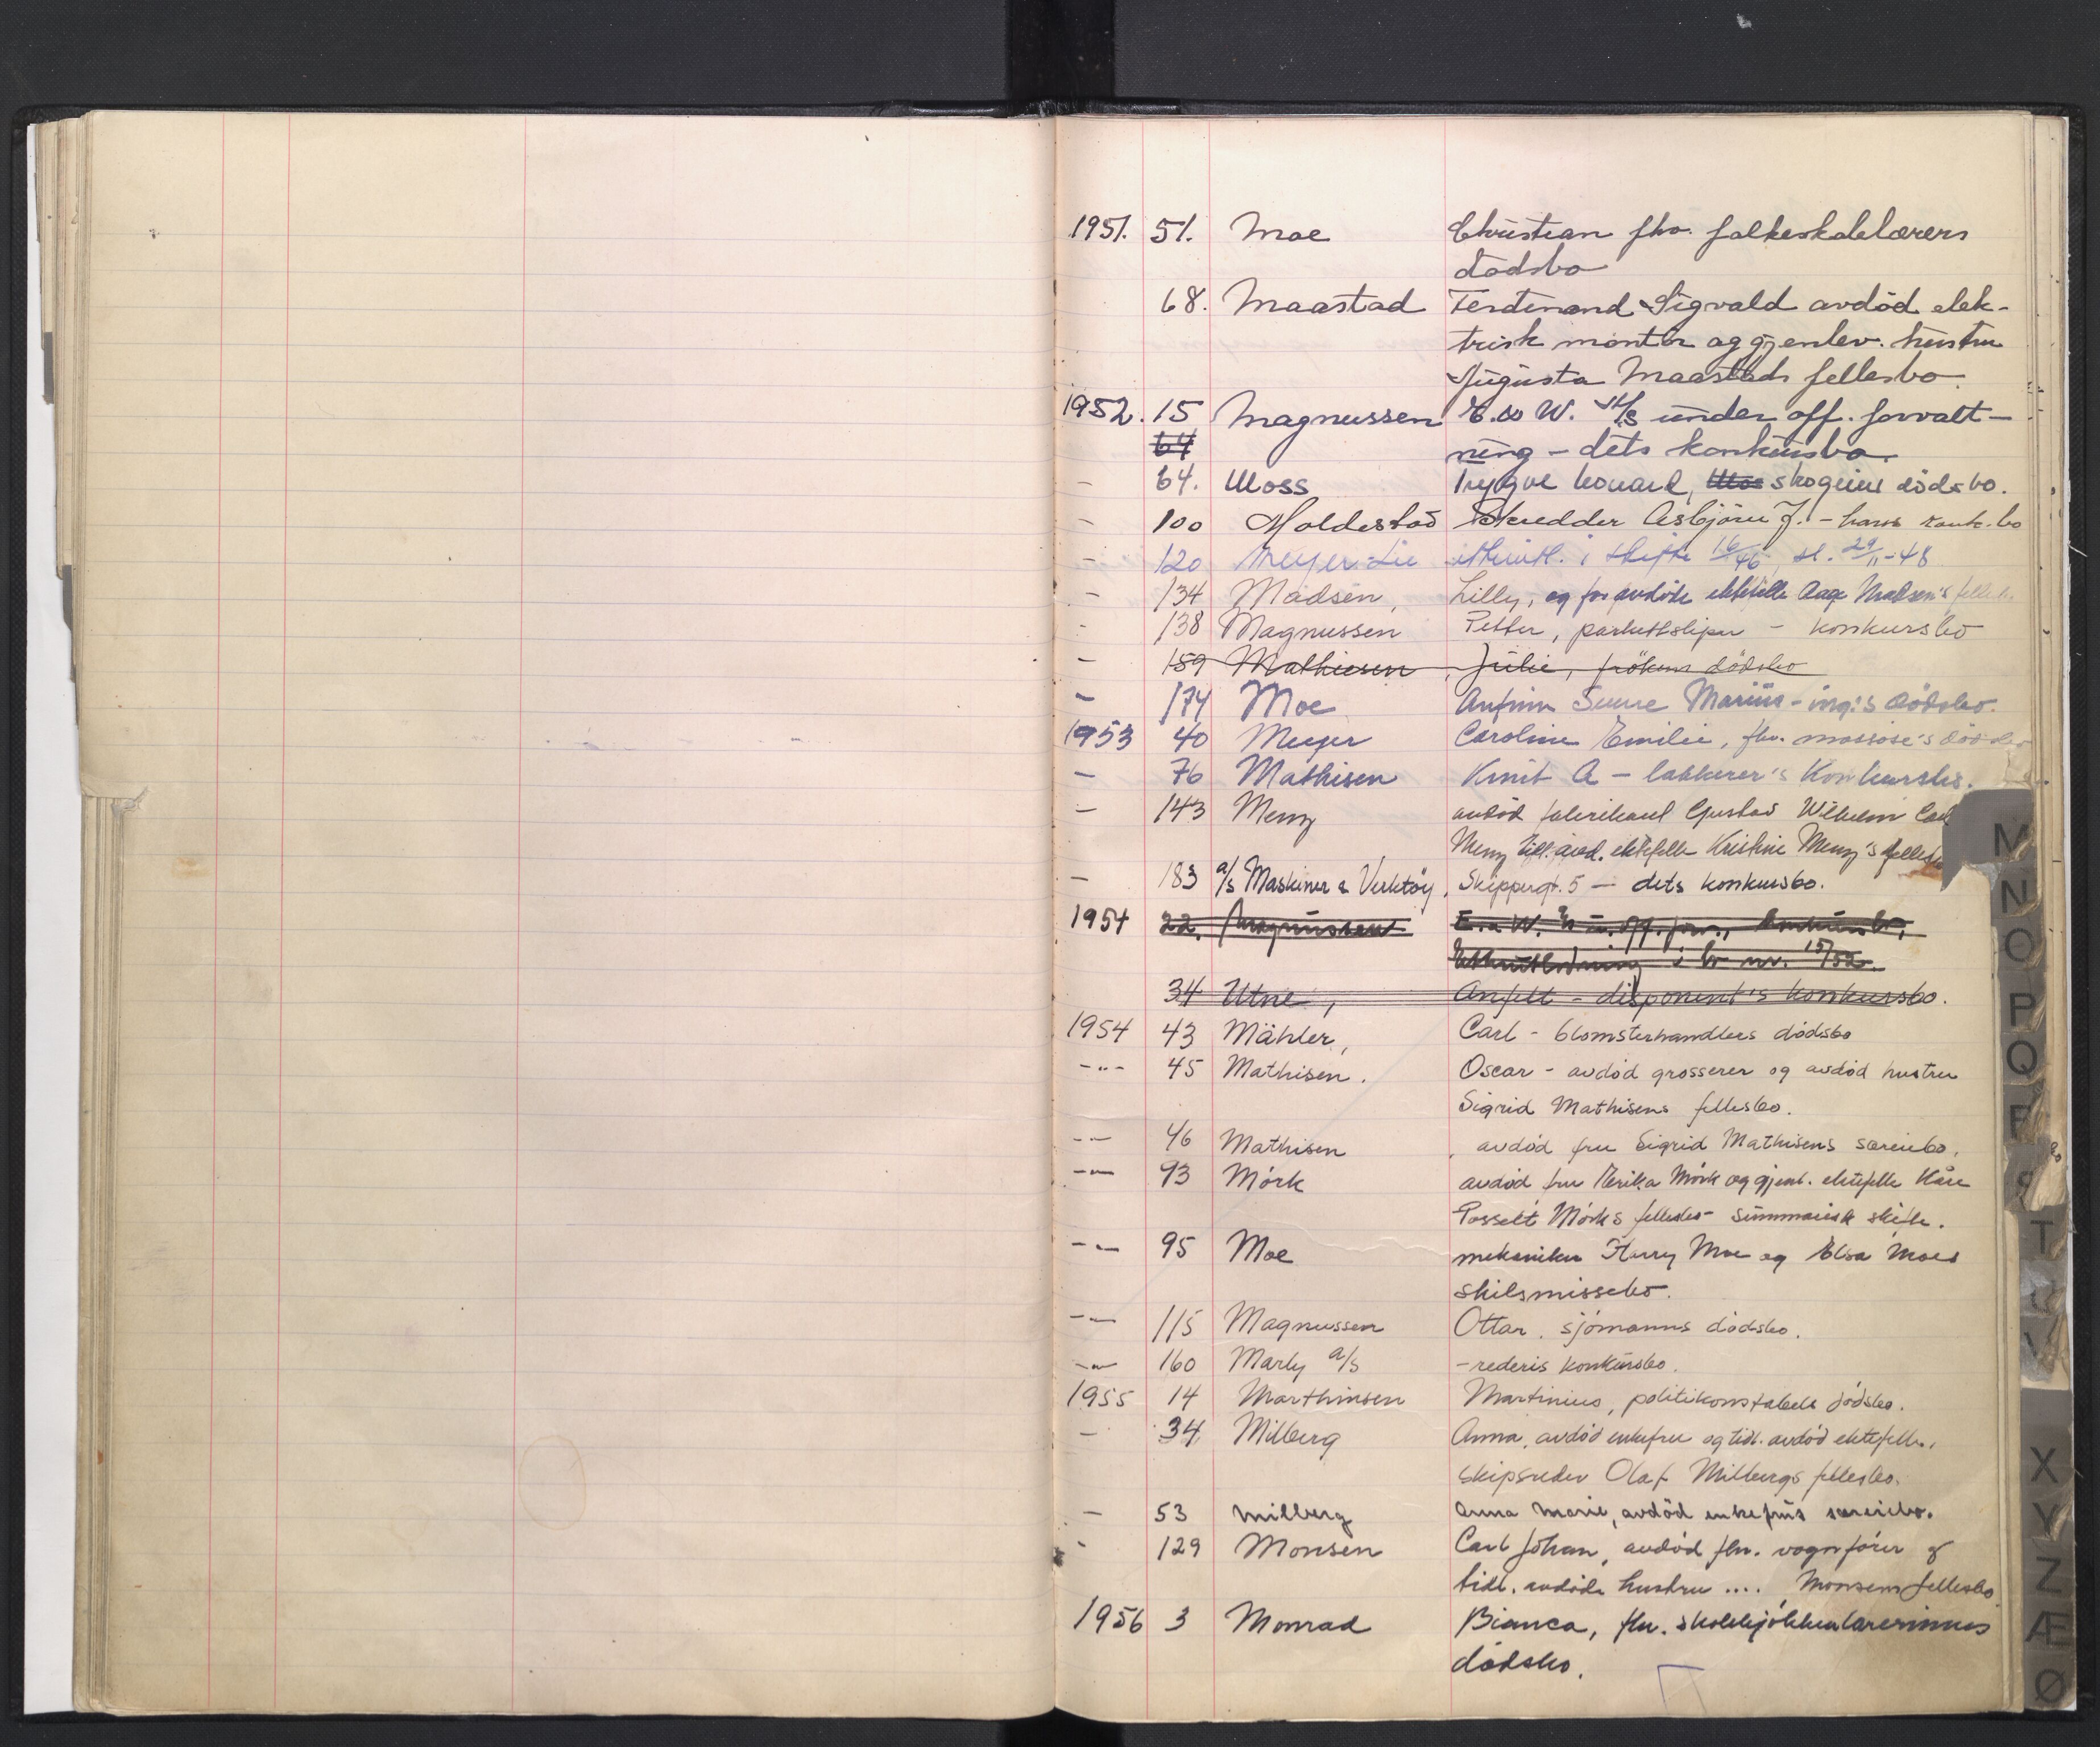 1951. 51. Moe Christian fhv. folkeskolelærers
dødsbo
68. Maastad Ferdinand Sigvald avdöd elek-
trisk montör og gjenlev. hustru
Augusta Maastads fellesbo.
1952. 15 Magnussen E. & W. A/S under off. forvalt-
64 ning - dets konkursbo.
- 64. Moss Trygve, skogeiers dödsbo.
- 100 Moldestad Skredder Asbjörn J. - hans konk.bo
- 120 Meyer Lie etterutl. i skifte 16/46, sl. 29/11-48
- 134 Madsen, Lilly, og for avdöde ektefelle Aage Madsen's
- 138 Magnussen Petter, parkettsliper - konkursbo
- 159 Mathiesen, Julie, frökens dödsbo
- 174 Moe Anfinn Marius - ing:s dödsbo.
1953 40 Meyer Caroline Emilie, fhv. massöse's
- 76 Mathisen Knut A - lakkerer's Konkursbo.
- 143 Meny avdöd fabrikant Gustav Wilhelm
Meny tidl. avd. ektefelle Kristine Meny's
- 183 a/s Maskiner & Verktöy, Skippergt. 5 - dets konkursbo.
1954 22. Magnussen E. & W. A/S u. off. forv., konkursbo,
Etterutlodning i bo nr. 15/52.
34 Utne, Anfelt - disponent's konkursbo.
1954 43 Mähler, Carl - blomsterhandlers dødsbo
-"- 45 Mathisen. Oscar - avdød grosserer og avdød hustru
Sigrid Mathisens fellesbo.
-"- 46 Mathisen, avdød fru Sigrid Mathisens særeiebo.
-"- 93 Mörk avdød fru Erika Mörk og gjenl. ektefelle Kåre
Posselt Mörks fellesbo - summarisk skifte.
-"- 95 Moe mekaniker Harry Moe og Elsa Moes
skilsmissebo.
-"- 115 Magnussen Ottar, sjømanns dødsbo.
-"- 160 Marly a/s - rederis konkursbo.
1955 14 Marthinsen Martinius, politikonstabels dødsbo.
- 34 Milberg Anna, avdød enkefru og tidl. avdød ektefelle,
skipsreder Olaf Milbergs fellesbo.
- 53 Milberg Anna Marie, avdöd enkefrus særeiebo.
- 129 Monsen Carl Johan, avdød fhv. vognfører og
tidl. avdøde hustru .... Monsens fellesbo
1956 3 Monrad Bianca, fhv. skolekjøkkenlærerinnes
dødsbo.
M
N
O
P
Q
R
T
U
V
X
Y
Z
Æ
Ø